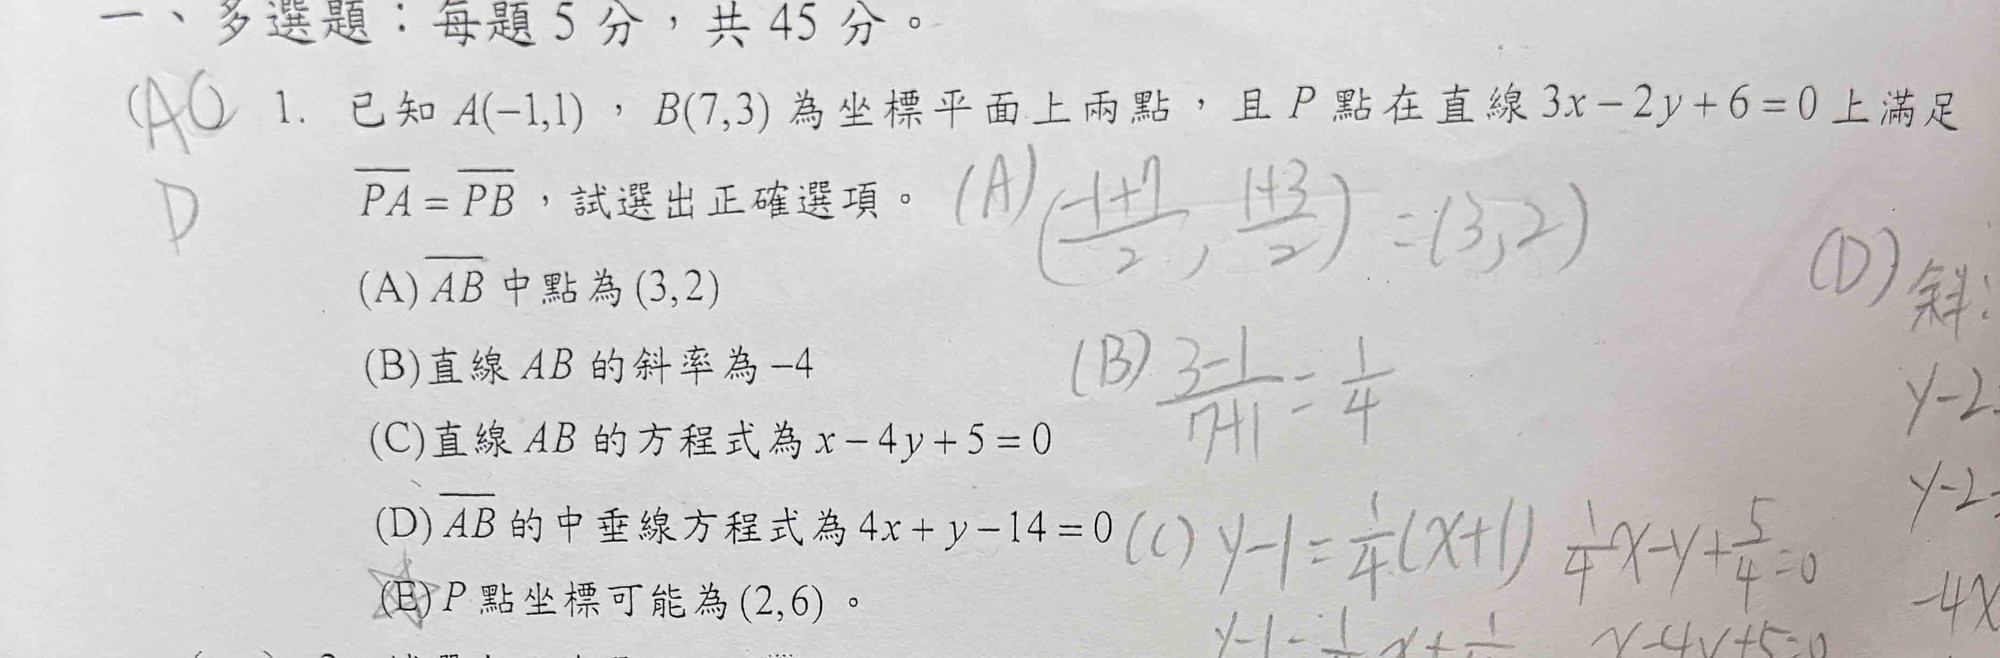 一、多選題：每題 5 分，共 45 分。
(AC 1. 已知 A(−1,1)，B(7,3) 為坐標平面上兩點，且 P 點在直線 3x−2y+6=0 上滿足
D PA=PB，試選出正確選項。 (A) (-1+7/2, 1+3/2) =(3,2)
(D) 斜:
(A) AB 中點為 (3,2)
(B) 直線 AB 的斜率為 −4 (B) 3-1/7+1 = 1/4
y-2
(C) 直線 AB 的方程式為 x−4y+5=0
y-2
(D) AB 的中垂線方程式為 4x+y−14=0 (C) y-1=1/4(x+1) 1/4x-y+5/4=0
(E) P 點坐標可能為 (2,6)。
-4x
x-4y+5=0